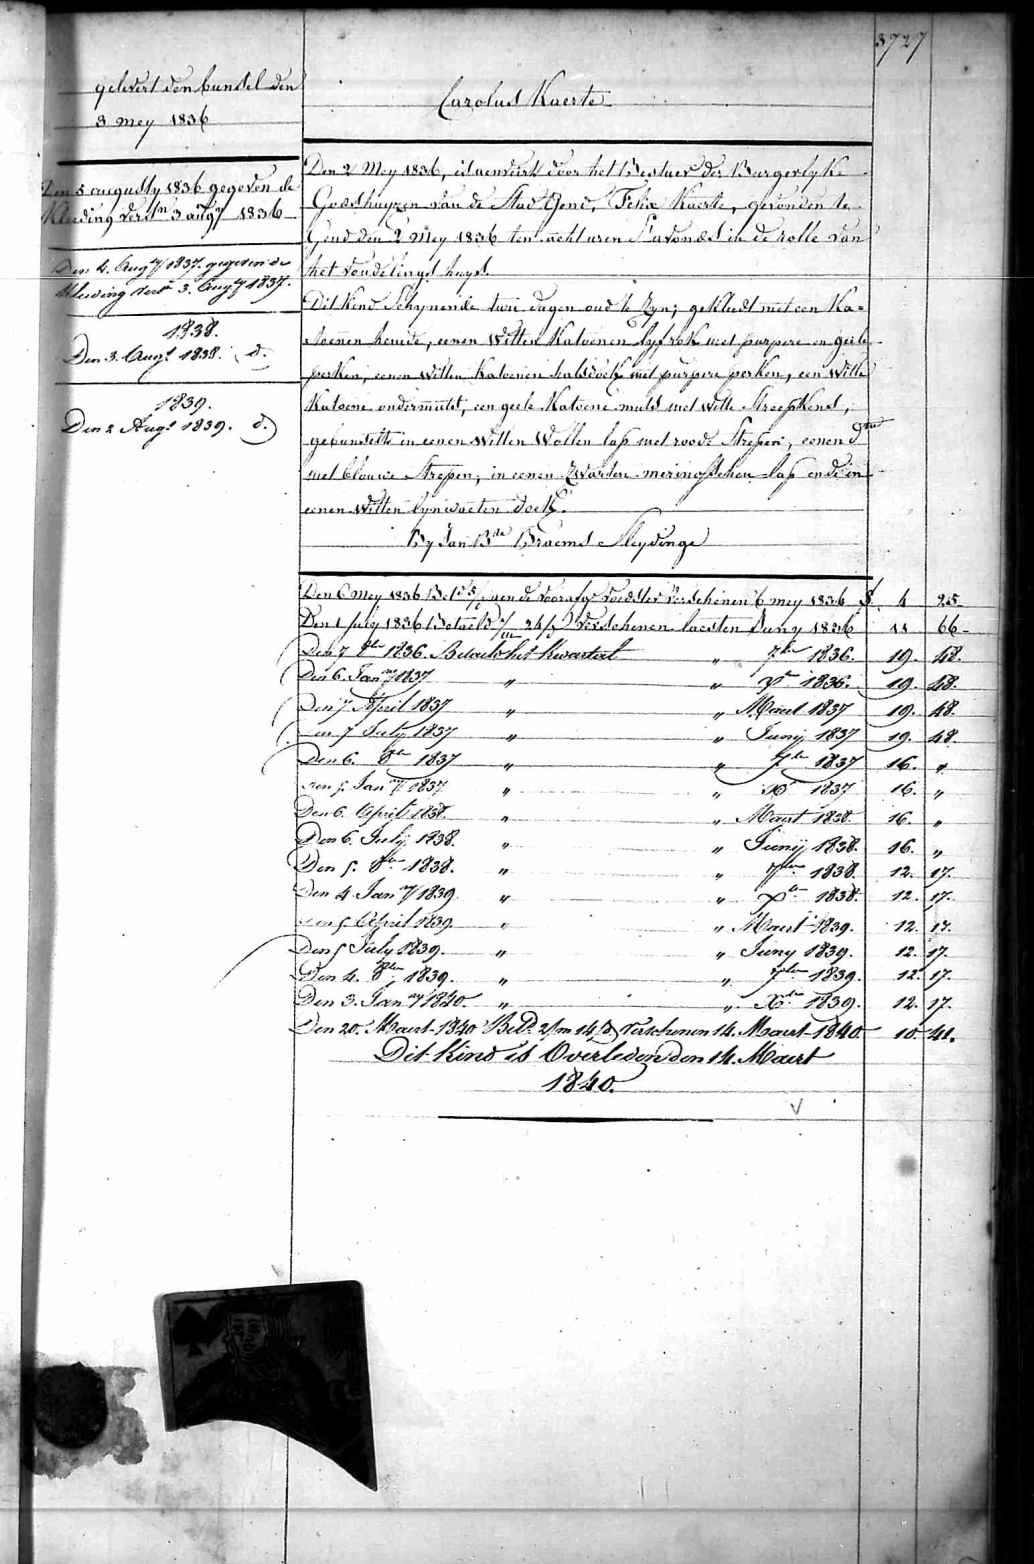 3727
gelevert den bundel den
3 mey 1836
Den 5 augusty 1836 gegeven de
kleeding versn 3 augy 1836
Den 4. Augy 1837. gegeven de
kleeding versn 3. Augy 1837.
1838.
Den 3. Augt 1838. d.
1839.
Den 2 Augt 1839. d.
Carolus Kaerte
Den 2 Mey 1836, is aenveirt door het Bestuer der Burgerlyke
Godshuyzen van de Stad Gend, Felix Kaerte, gevonden te
Gend den 2 Mey 1836 ten acht uren s'avonds in de rolle van
het vondelings huys.
Dit Kind schynende twee dagen oud te zyn; gekleedt met een Ka-
toenen hemde, eenen witten Katoenen lyfrok met purpere en geele
perken, eenen witten Katoenen halsdoek met purpere perken, een witte
Katoene ondermuts, een geele Katoene muts met witte streepkens,
gebundelt in eenen witten wollen lap met roode strepen, eenen dito
met blauwe strepen, in eenen zwarten merinosschen lap ende in
eenen witten lynwaeten doek.
By Jan Bte Braems Sleydinge
Den 6 Mey 1836 Betd aen de voorafge voedster verschenen 6 mey 1836 f. 4 25
Den 1 July 1836 Betaeld 1/m 24/d verschenen laesten Juny 1836 11 66
Den 7 8bre 1836. Betaeld het kwartael " 7bre 1836. 19. 48.
Den 6. Jany 1837 " " Xr 1836. 19. 48.
Den 7 April 1837 " " Maert 1837 19. 48.
Den 7 July 1837 " " Juny 1837 19. 48.
Den 6. 8bre 1837 " " 7bre 1837 16. "
Den 5. Jany 1837 " " Xr 1837 16. "
Den 6. April 1838. " " Maert 1838. 16. "
Den 6. July 1838. " " Juny 1838. 16. "
Den 5. 8bre 1838. " " 7bre 1838. 12. 17.
Den 4 Jany 1839 " " Xbre 1838. 12. 17.
Den 5 April 1839. " " Maert 1839. 12. 17.
Den 5 July 1839. " " Juny 1839. 12. 17.
Den 4. 8bre 1839. " " 7bre 1839. 12. 17.
Den 3. Jany 1840. " " Xbre 1839. 12. 17.
Den 20. Maert 1840 Betd. 2/m 14/d verschenen 14. Maert 1840 10. 41.
Dit Kind is Overleden den 14. Maert
1840.